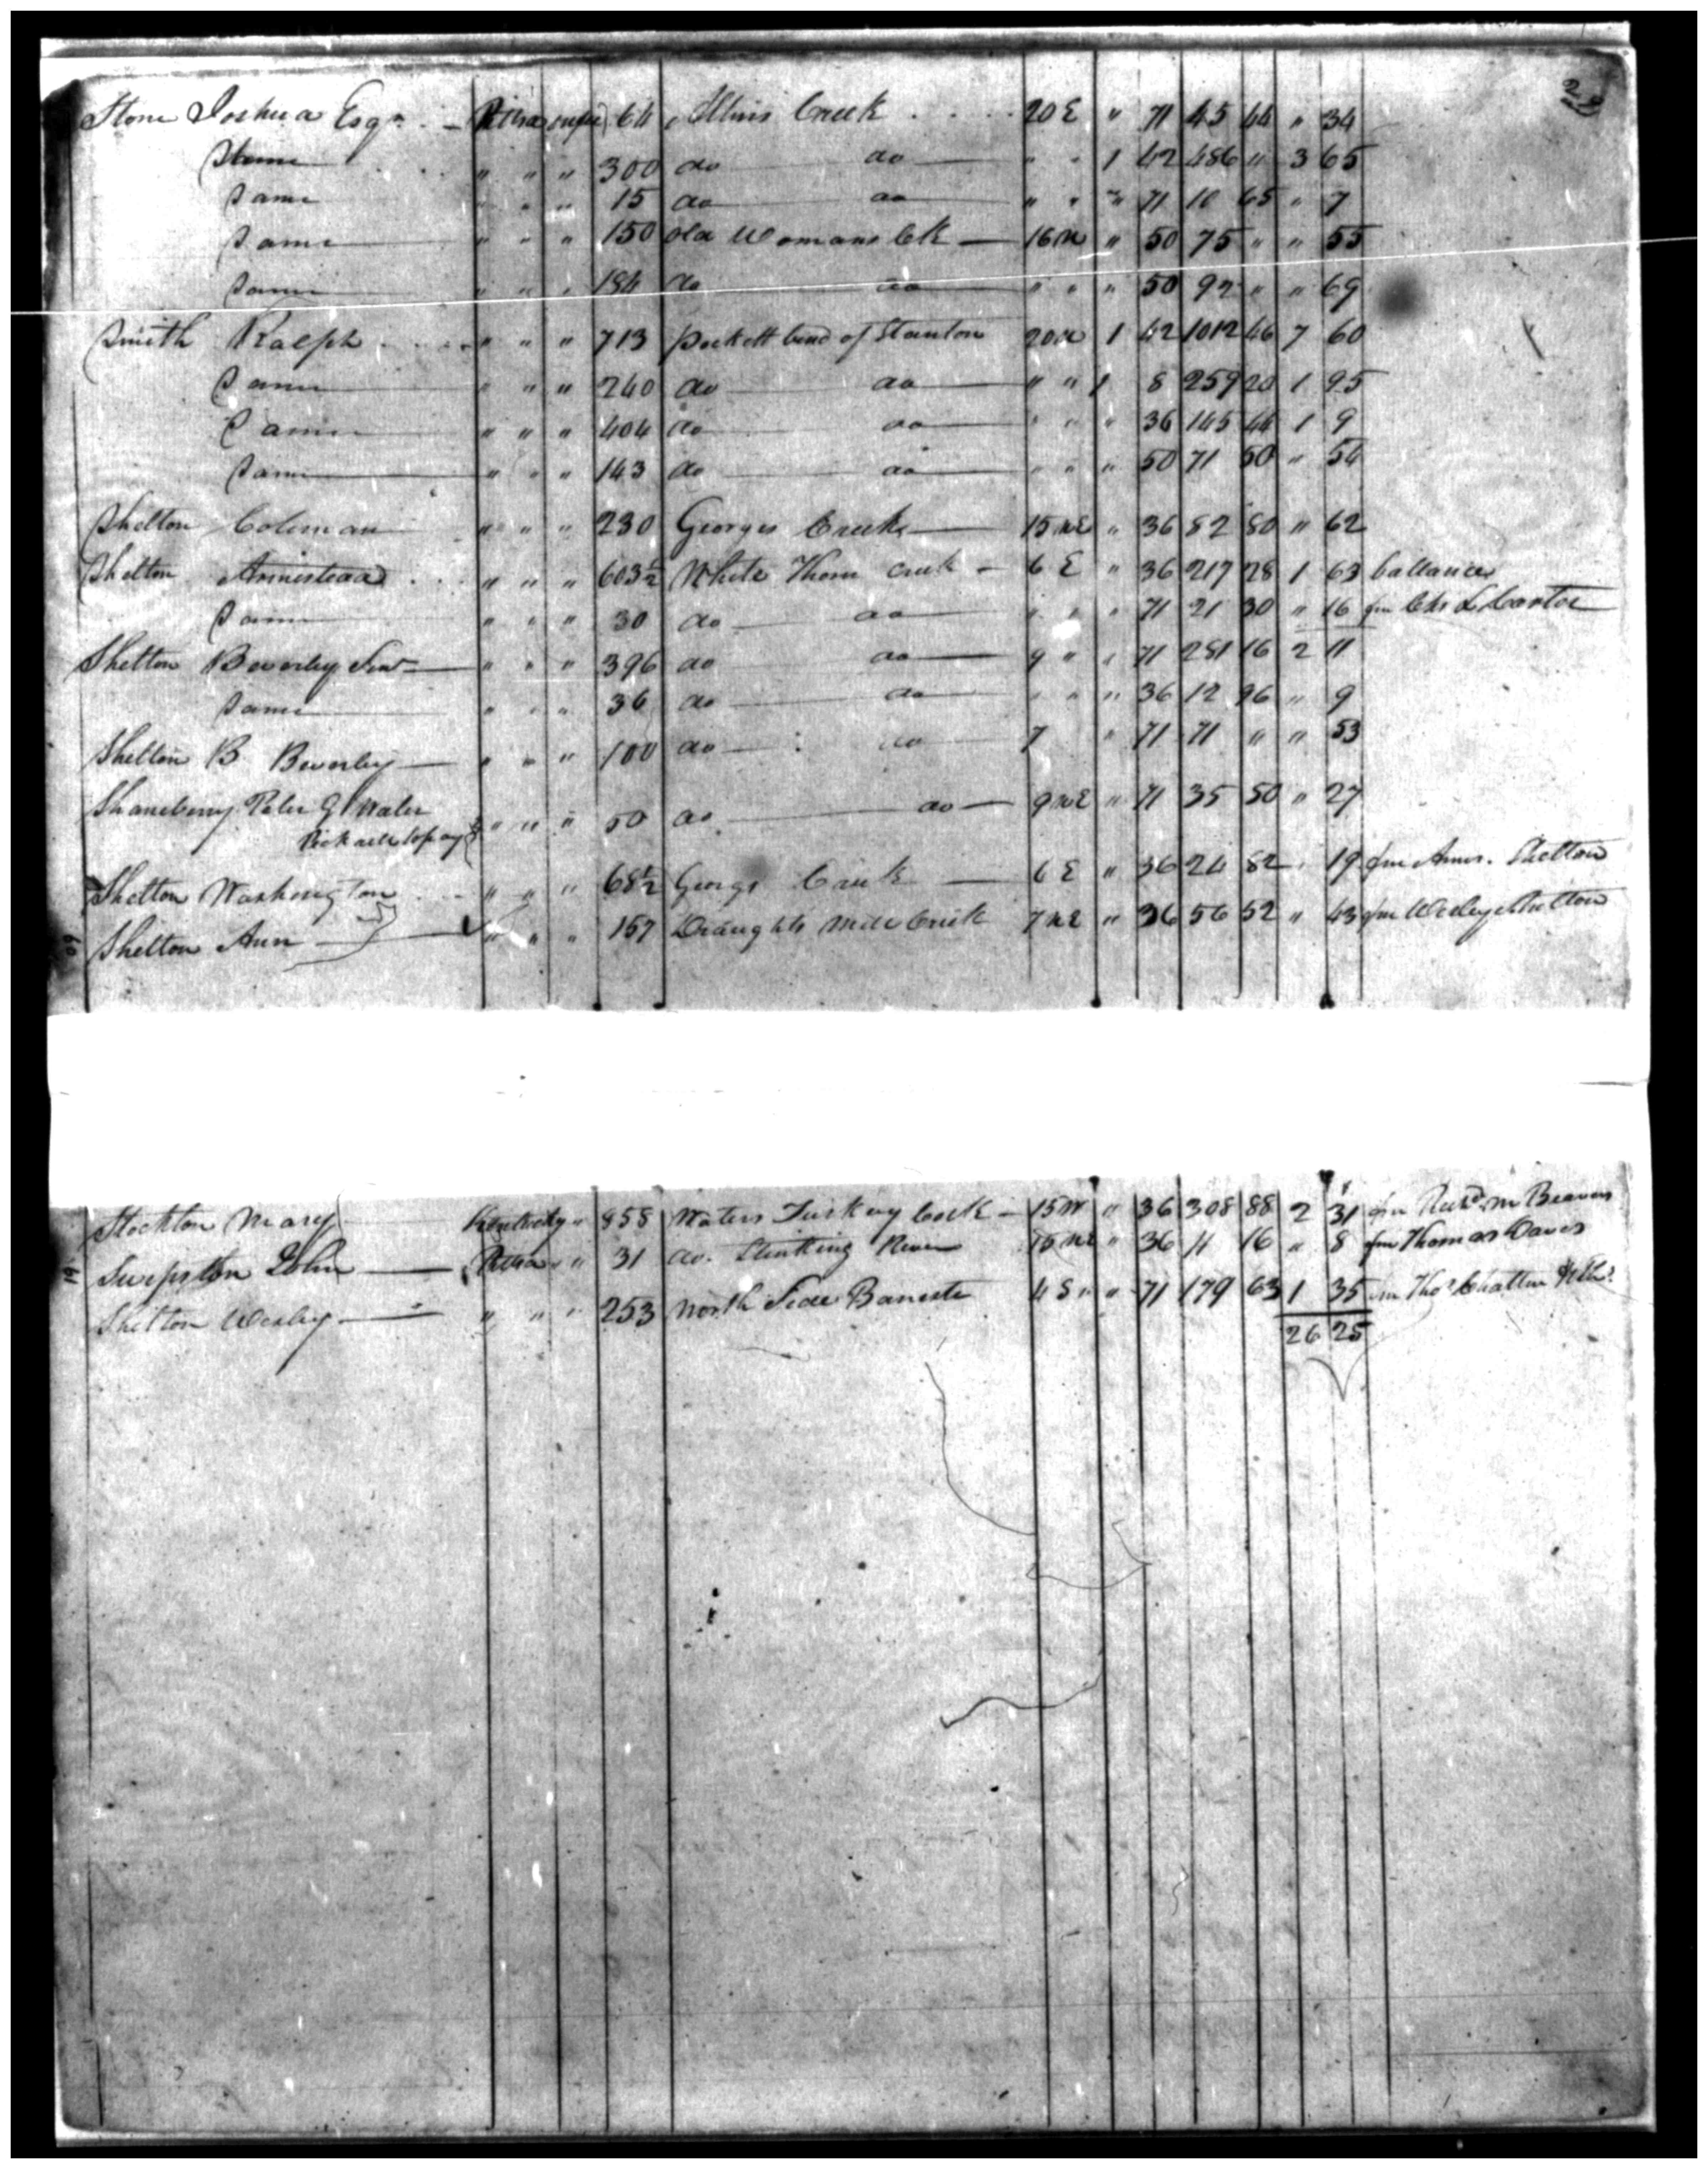 22
Stone Joshua Esqr. Pittsa 64 Creek 20 E " 71 45 44 " 34
Same " " " 300 do do " " 1 42 426 " 3 65
Same " " " 15 do do " " " 71 10 65 " 7
Same " " " 150 Old Womans Ck 16 N " 50 75 " " 55
Same " " " 184 do do " " " 50 92 " " 69
Smith Ralph " " " 713 Pockett bend of Stanton 20 N 1 42 1012 46 7 60
Same " " " 240 do do " " 1 8 259 20 1 95
Same " " " 404 do do " " " 36 145 44 1 9
Same " " " 143 do do " " " 50 71 50 " 54
Shelton Coleman " " " 230 Georges Creek 15 NE " 36 82 80 " 62
Shelton Armistead " " " 603½ White Thorn creek 6 E " 36 217 28 1 63 ballance
Same " " " 30 do do " " " 71 21 30 " 16 fm Chs L Carter
Shelton Beverley Senr " " " 396 do do 9 " " 71 281 16 2 11
Same " " " 36 do do " " " 36 12 96 " 9
Shelton B Beverley " " " 100 do do 7 " 71 71 " " 53
Peter G Water
" " " 50 do do 9 NE " 71 35 50 " 27
Shelton Washington " " " 68½ Georges Creek 6 E " 36 24 82 " 19 fm Armr. Shelton
Shelton Ann " " " 157 Draughts Mill Creek 7 NE " 36 56 52 " 43 fm Wesley Shelton
Stockton Mary Kentucky " 858 Waters Turkey Cock 15 W " 36 308 88 2 31 fm Richd. M Beavers
Swepston John Pittsa " " 31 do. Stinking River 15 NE " 36 11 16 " 8 fm Thomas Davis
Shelton Wesley " " " 253 North Side Banester 4 S " " 71 179 63 1 35 fm Thos Chattin
26 25